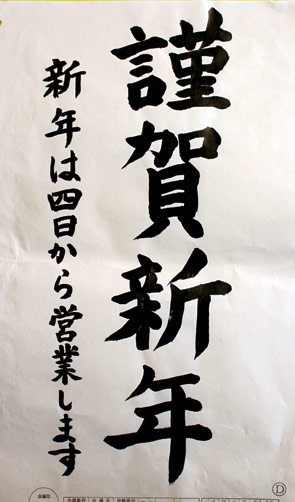 謹賀新年
新年は四日から営業します
D